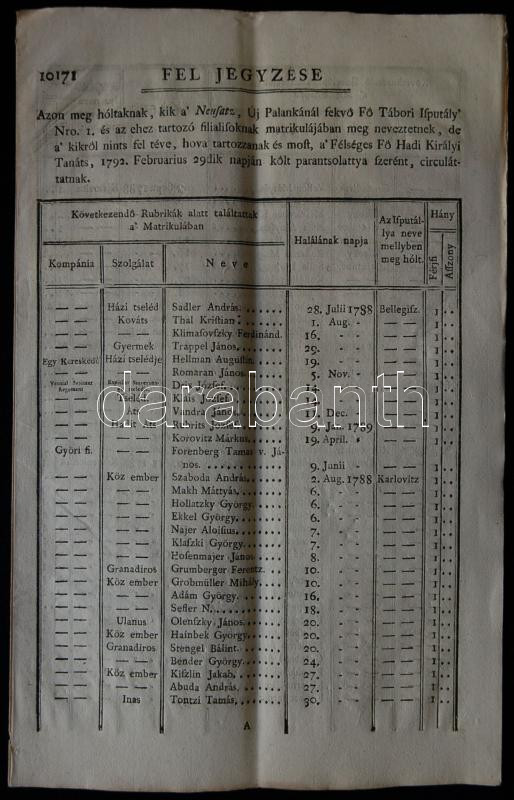 10171 FEL JEGYZÉSE
Azon meg hóltaknak, kik a' Neusatz, Új Palankánál fekvő Fő Tábori Isputály'
Nro. 1. és az ehez tartozó filialisoknak matrikulájában meg neveztetnek, de
a' kikről nints fel téve, hova tartozzanak és most, a' Félséges Fő Hadi Királyi
Tanáts, 1792. Februarius 29dik napján költ parantsolattya szerént, circulát-
tatnak.
Következendő Rubrikák alatt találtattak a' Matrikulában Halálának napja Az Isputállya neve mellyben meg hólt. Hány
Kompánia Szolgálat Neve Férfi Asszony
— — Házi tseléd Sadler András. 28. Julii 1788 Bellegisz. 1
— — Kováts Thal Kristian 1. Aug. - — — 1
— — — — Klimasovszky Ferdinánd. 16. - - — — 1
— — Gyermek Trappel János. 29. - - — — 1
Egy Kereskedő Házi tselédje Hellman Augustin. 19. - - — — 1
— — — — Romaran János. 5. Nov. - — — 1
József 14. 1
Tseléd Klais József 14. 1
Vandra János 11. Dec. - 1
Rubrits József 9. Jan. 1789 1
— — Korovitz Márkus. 19. April. - — — 1
Győri fi. — — Forenberg Tamás v. Já-
nos. 9. Junii - — — 1
— — Köz ember Szaboda András. 2. Aug. 1788 Karlovitz 1
— — — — Makh Máttyás. 6. - - — — 1
— — — — Hollatzky György. 6. - - — — 1
— — — — Ekkel György. 6. - - — — 1
— — — — Najer Aloisius. 7. - - — — 1
— — — — Klaszki György. 7. - - — — 1
— — — — Hosenmajer János. 8. - - — — 1
— — Granadiros Grumberger Ferentz. 10. - - — — 1
— — Köz ember Grobmüller Mihály. 10. - - — — 1
— — — — Adám György. 16. - - — — 1
— — — — Sesler N. 18. - - — — 1
— — Ulanus Olenszky János. 20. - - — — 1
— — Köz ember Hainbek György. 20. - - — — 1
— — Granadiros Stengel Bálint. 20. - - — — 1
— — — — Bender György. 24. - - — — 1
— — Köz ember Kiszlin Jakab. 27. - - — — 1
— — — — Abuda András. 27. - - — — 1
— — Inas Tontzi Tamás. 30. - - — — 1
A
darabanth